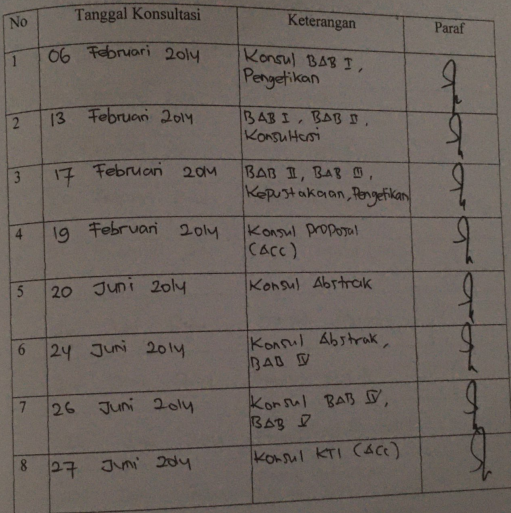 No Tanggal Konsultasi Keterangan Paraf
1 06 Februari 2014 Konsul BAB I,
Pengetikan
2 13 Februari 2014 BAB I, BAB II,
Konsultasi
3 17 Februari 2014 BAB II, BAB III,
Kepustakaan, Pengetikan
4 19 Februari 2014 Konsul Proposal
(ACC)
5 20 Juni 2014 Konsul Abstrak
6 24 Juni 2014 Konsul Abstrak,
BAB IV
7 26 Juni 2014 Konsul BAB IV,
BAB V
8 27 Juni 2014 Konsul KTI (ACC)